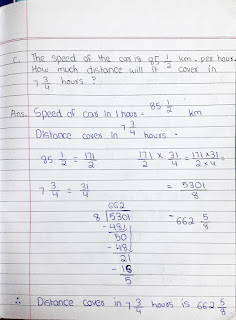 C. The speed of the car is 85 1/2 km. per hour.
How much distance will it cover in
7 3/4 hours ?
Ans. Speed of car in 1 hour = 85 1/2 km
Distance cover in 7 3/4 hours =
85 1/2 = 171/2 171/2 × 31/4 = 171×31/2×4 =
7 3/4 = 31/4 = 5301/8
662
8 √5301 = 662 5/8
- 48↓
50
- 48
21
- 16
5
∴ Distance cover in 7 3/4 hours is 662 5/8